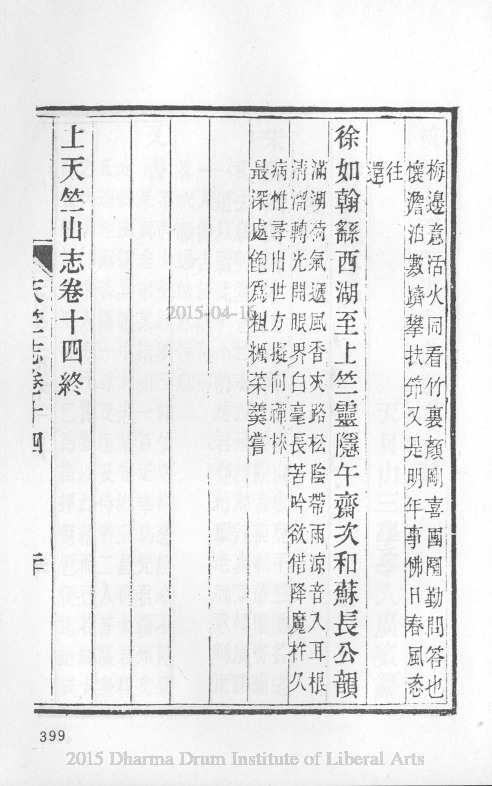 梅邊意活火同看竹裏顏剛喜團圞勤問答也
懷澹泊數躋攀扶筇又是明年事佛日春風恣
往
還
徐如翰繇西湖至上竺靈隱午齋次和蘇長公韻
滿湖荷氣遞風香夾路松陰帶雨涼音入耳根
清溜轉光開眼界白毫長苦吟欲借降魔杵久
病惟尋出世方擬向禪林
最深處飽爲粗糲菜羹嘗
上天竺山志卷十四終
天竺志卷十四
二十
399
2015-04-16
2015 Dharma Drum Institute of Liberal Arts